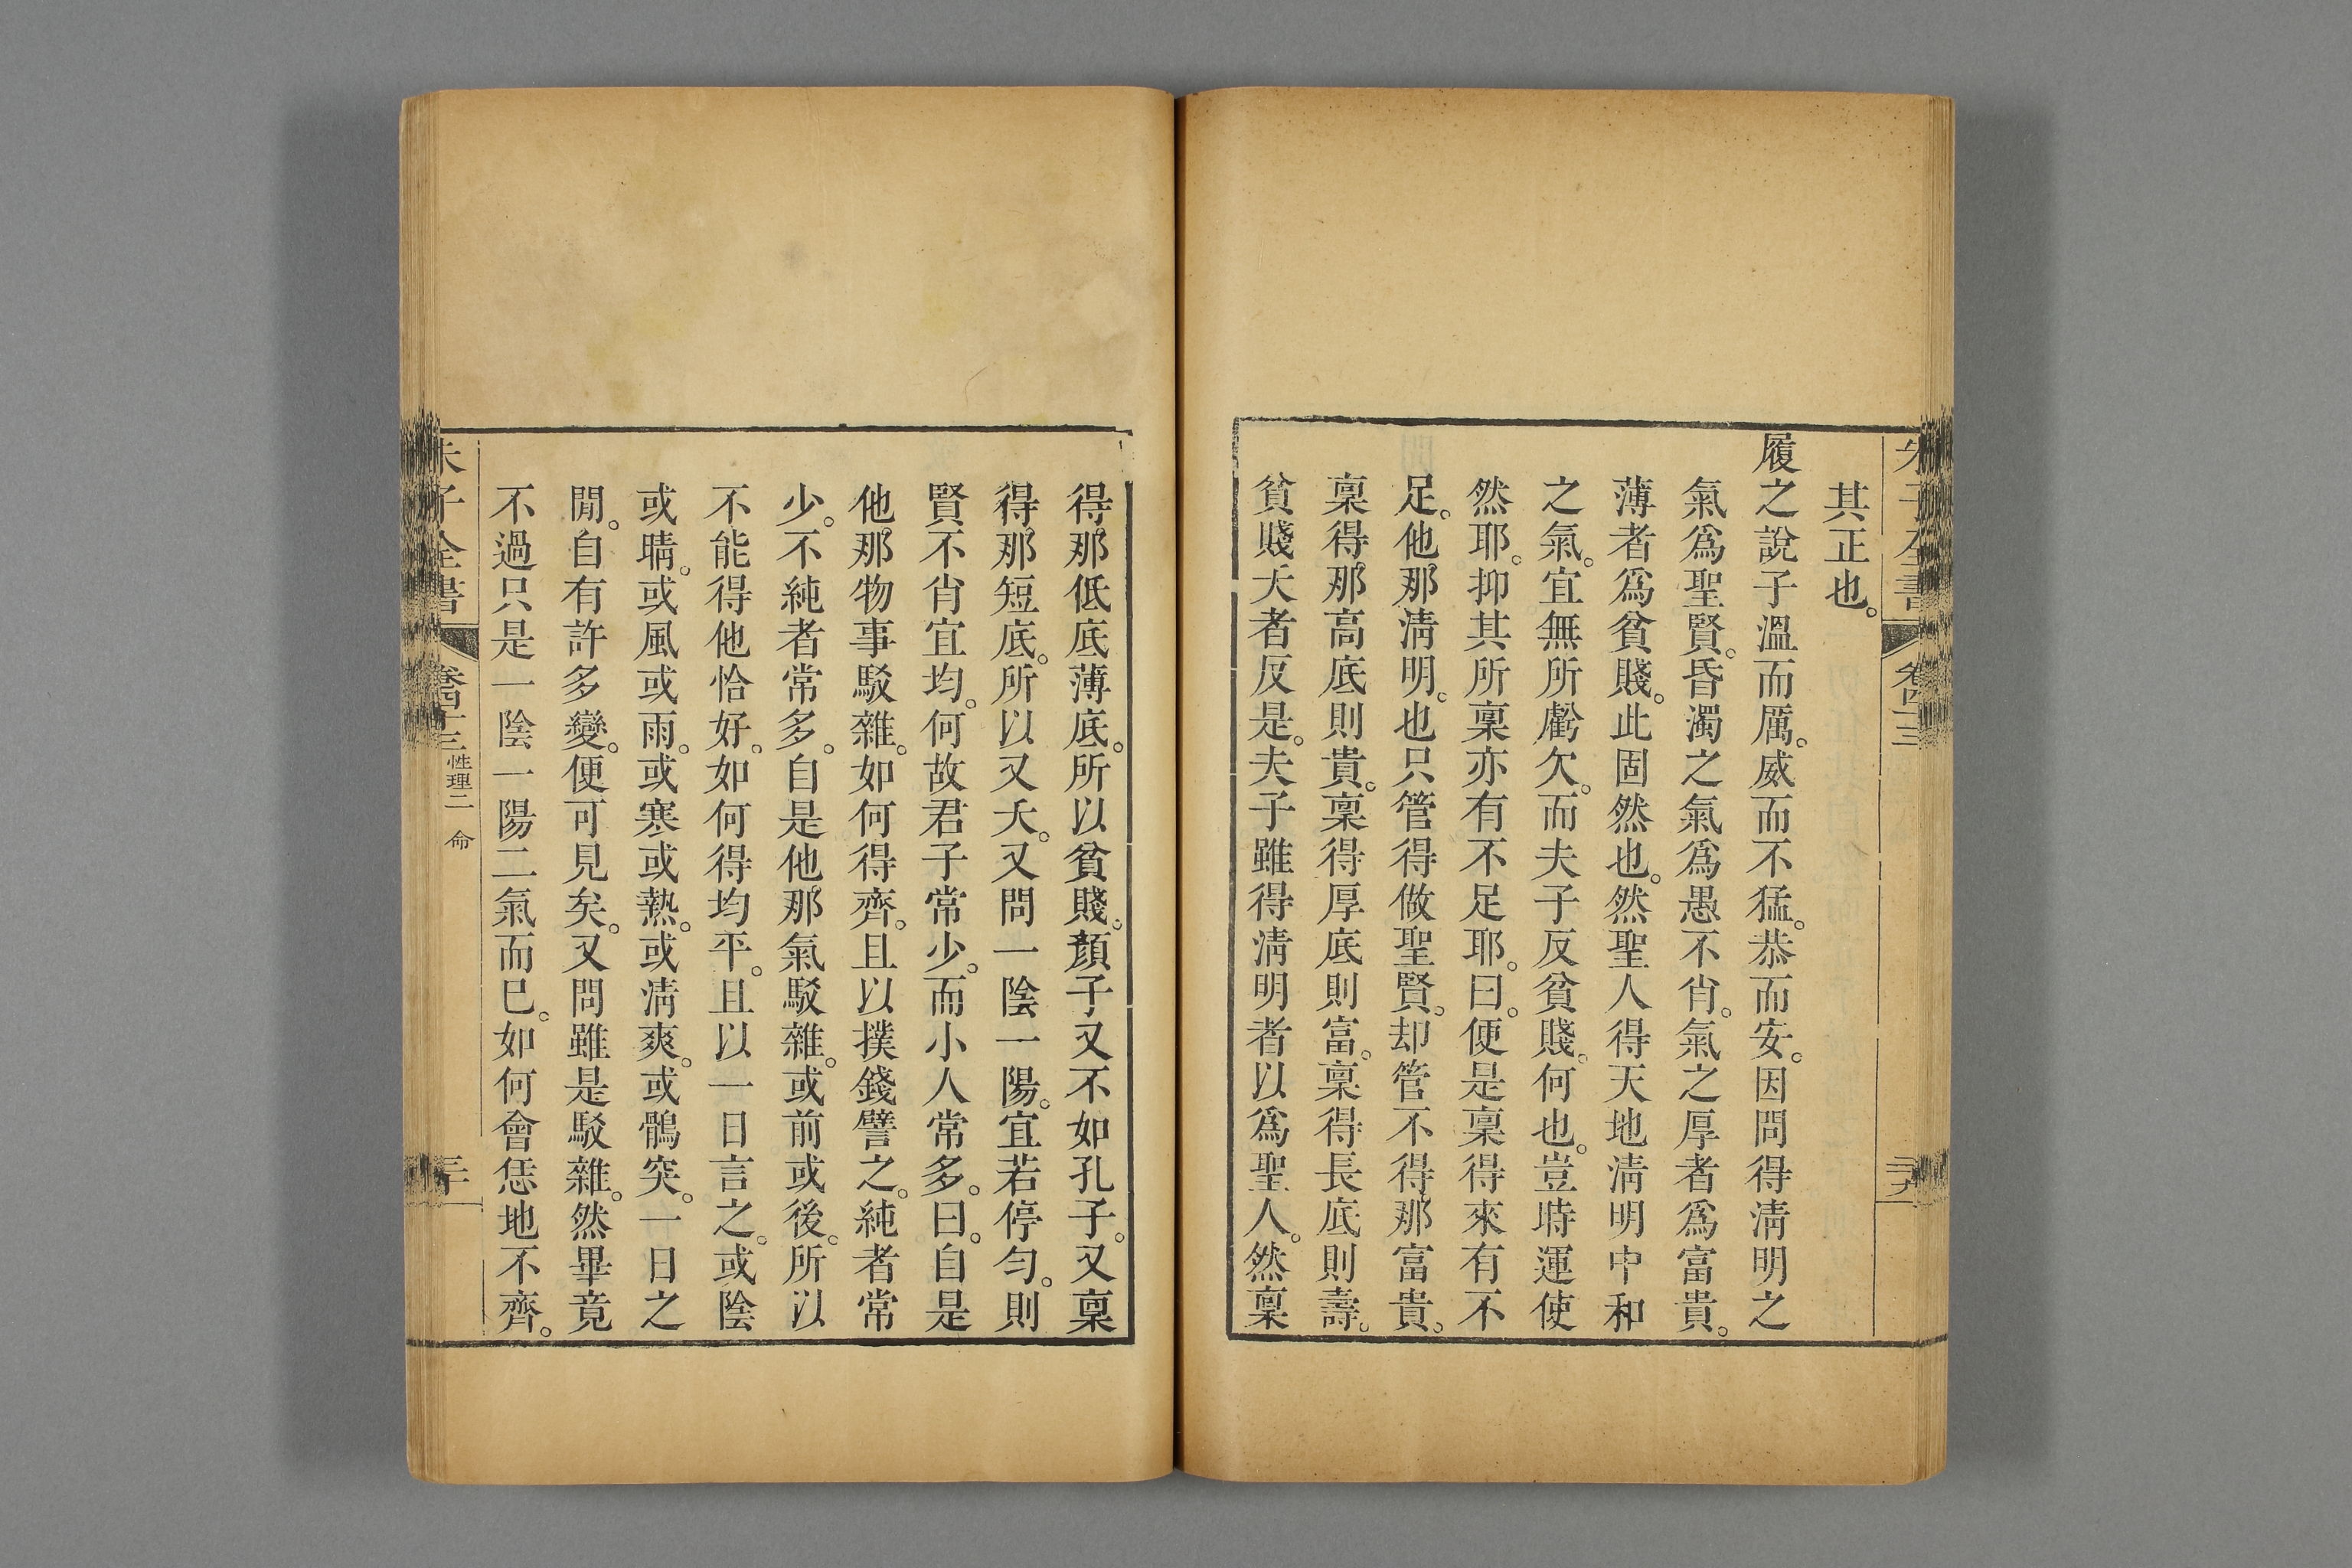 其正也。
履之說子溫而厲。威而不猛。恭而安。因問得淸明之
氣爲聖賢。昏濁之氣爲愚不肖。氣之厚者爲富貴。
薄者爲貧賤。此固然也。然聖人得天地淸明中和
之氣。宜無所虧欠。而夫子反貧賤。何也。豈時運使
然耶。抑其所稟亦有不足耶。曰。便是稟得來有不
足。他那淸明。也只管得做聖賢。却管不得那富貴。
稟得那高底則貴。稟得厚底則富。稟得長底則壽。
貧賤夭者反是。夫子雖得淸明者以爲聖人。然稟
得那低底薄底。所以貧賤。顏子又不如孔子。又稟
得那短底。所以又夭。又問一陰一陽。宜若停勻。則
賢不肖宜均。何故君子常少。而小人常多。曰。自是
他那物事駁雜。如何得齊。且以撲錢譬之。純者常
少。不純者常多。自是他那氣駁雜。或前或後。所以
不能得他恰好。如何得均平。且以一日言之。或陰
或晴。或風或雨。或寒或熱。或淸爽。或鶻突。一日之
閒。自有許多變。便可見矣。又問雖是駁雜。然畢竟
不過只是一陰一陽二氣而已。如何會恁地不齊。
朱子全書
卷四十三 性理二 命
三十